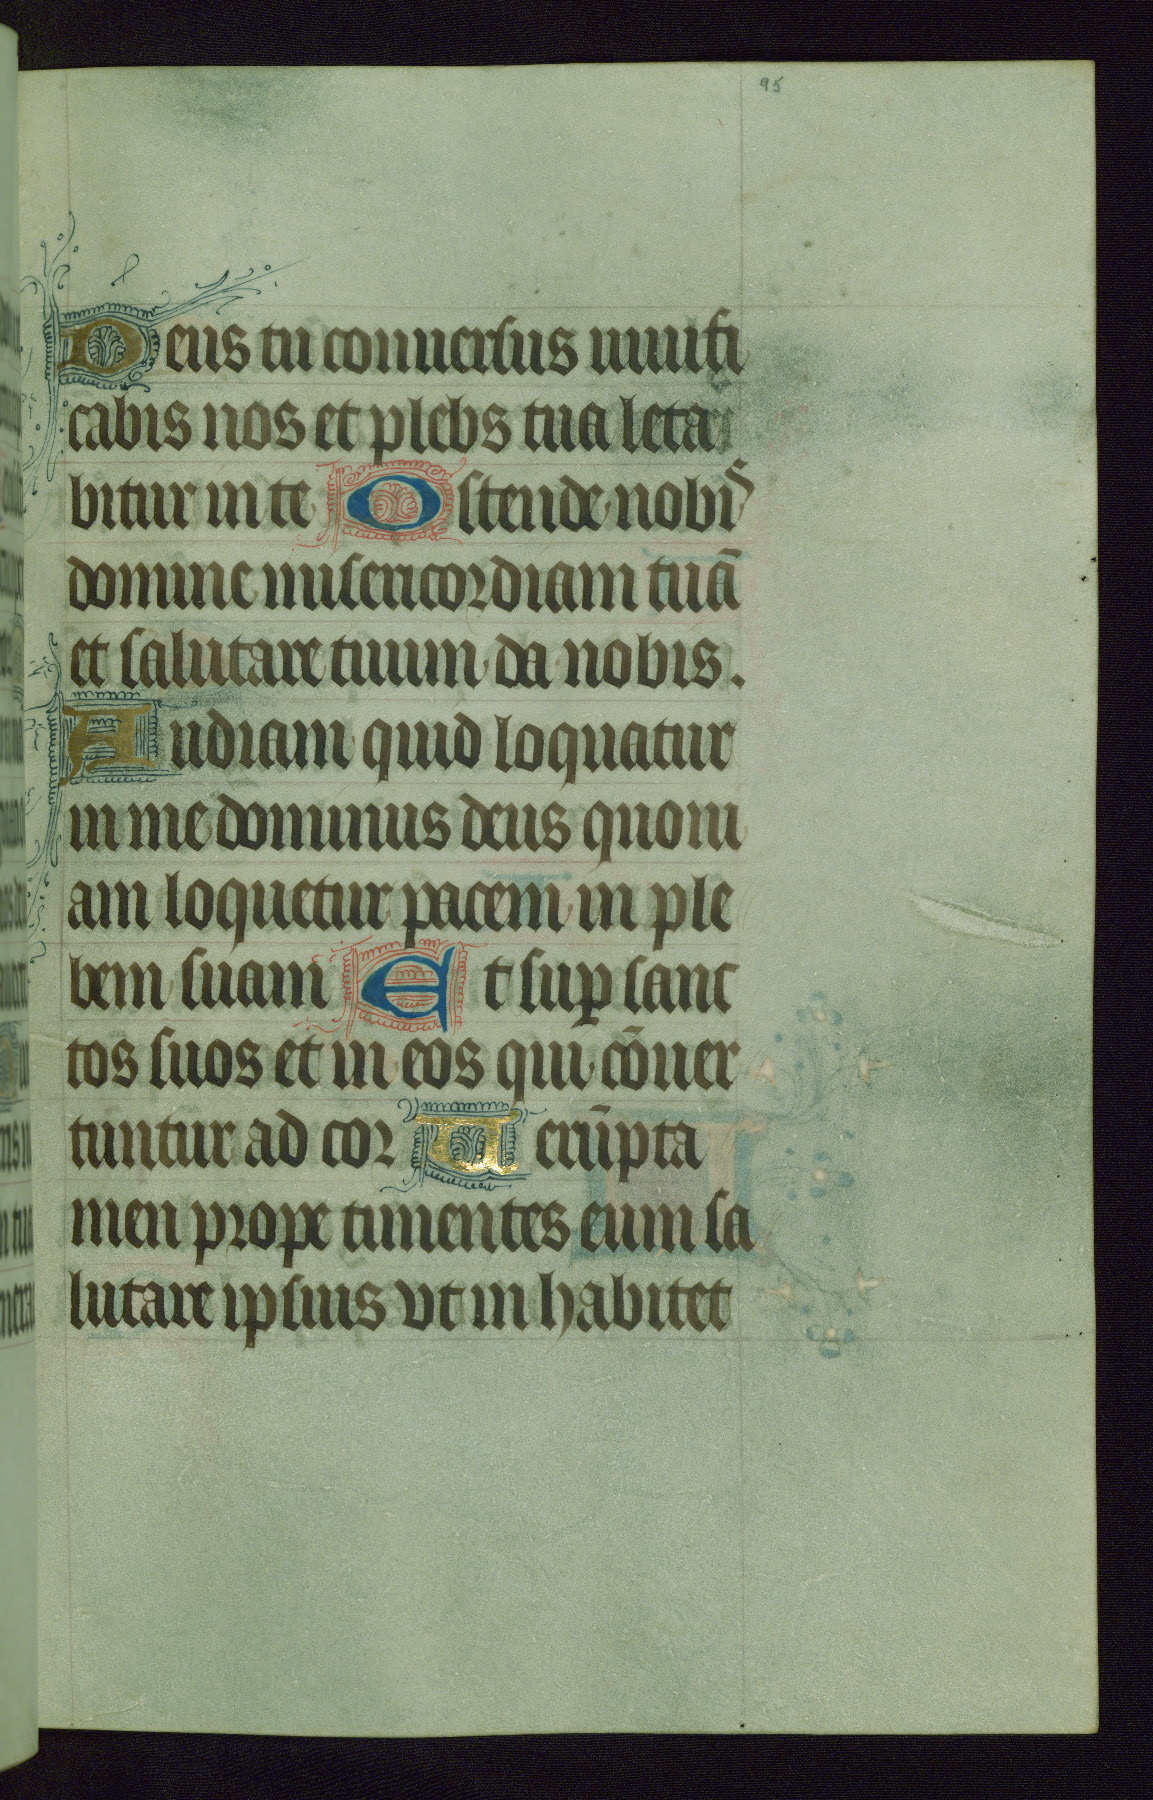 95
Deus tu conuersus uiuifi
cabis nos et plebs tua leta
bitur in te Ostende nobis
domine misericordiam tuā
et salutare tuum da nobis.
Audiam quid loquatur
in me dominus deus quoni
am loquetur pacem in ple
bem suam Et suꝑ sanc
tos suos et in eos qui cōuer
tuntur ad cor Uerūpta
men prope timentes eum sa
lutare ipsius vt in habitet